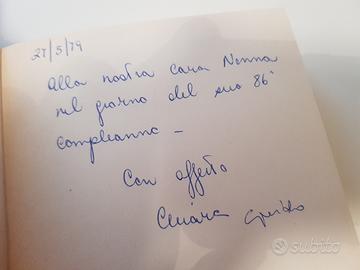 27/5/79
Alla nostra cara Nonna
nel giorno del suo 86°
compleanno -
Con affetto
Chiara Guido
subito